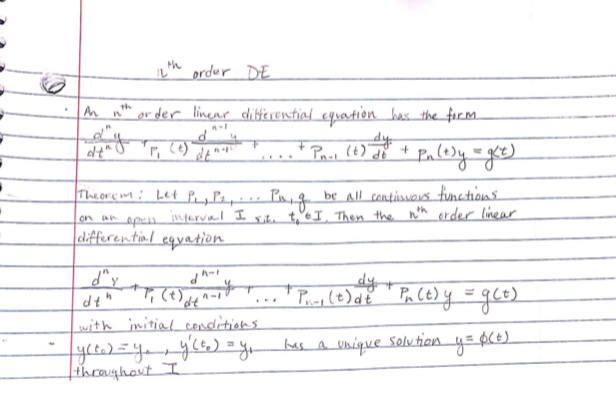 nth order DE
An nth order linear differential equation has the form
dⁿy/dtⁿ + P₁(t) dⁿ⁻¹y/dtⁿ⁻¹ + .... + Pₙ₋₁(t) dy/dt + Pₙ(t)y = g(t)
Theorem: Let P₁, P₂, ... Pₙ, g be all continuous functions
on an open interval I s.t. t₀ ∈ I. Then the nth order linear
differential equation
dⁿy/dtⁿ + P₁(t) dⁿ⁻¹y/dtⁿ⁻¹ + ... + Pₙ₋₁(t) dy/dt + Pₙ(t)y = g(t)
with initial conditions
y(t₀) = y₀, y'(t₀) = y₁, has a unique solution y = ϕ(t)
throughout I